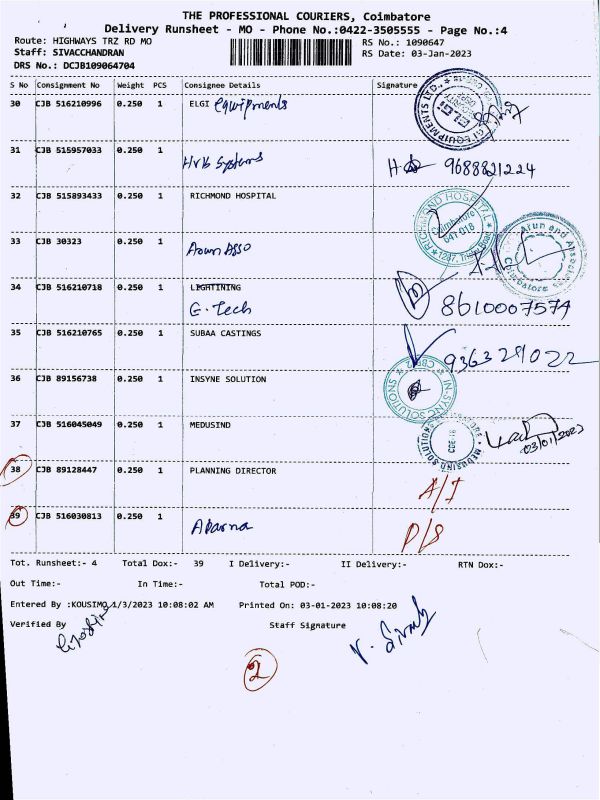 THE PROFESSIONAL COURIERS, Coimbatore
Delivery Runsheet - MO - Phone No.:0422-3505555 - Page No.:4
Route: HIGHWAYS TRZ RD MO
RS No.: 1090647
Staff: SIVACCHANDRAN
RS Date: 03-Jan-2023
DRS No.: DCJB109064704
S No Consignment No Weight PCS Consignee Details Signature
30 CJB 516210996 0.250 1 ELGI Equipments
31 CJB 515957033 0.250 1
HVB Systems 9688821224
32 CJB 515893433 0.250 1 RICHMOND HOSPITAL
RICHMOND HOSPITAL Coimbatore 641 018
33 CJB 30323 0.250 1
Arun and Associates Coimbatore
34 CJB 516210718 0.250 1 LIGHTINING
G. Tech 8610007574
35 CJB 516210765 0.250 1 SUBAA CASTINGS
36 CJB 89156738 0.250 1 INSYNE SOLUTION
IN-SYNC SOLUTIONS
37 CJB 516045049 0.250 1 MEDUSIND
MEDUSIND SOLUTIONS
03/01/2023
38 CJB 89128447 0.250 1 PLANNING DIRECTOR
A/I
39 CJB 516030813 0.250 1
Aparna D/S
Tot. Runsheet:- 4 Total Dox:- 39 I Delivery:- II Delivery:- RTN Dox:-
Out Time:- In Time:- Total POD:-
Entered By :KOUSIMO 1/3/2023 10:08:02 AM Printed On: 03-01-2023 10:08:20
Verified By Staff Signature
2